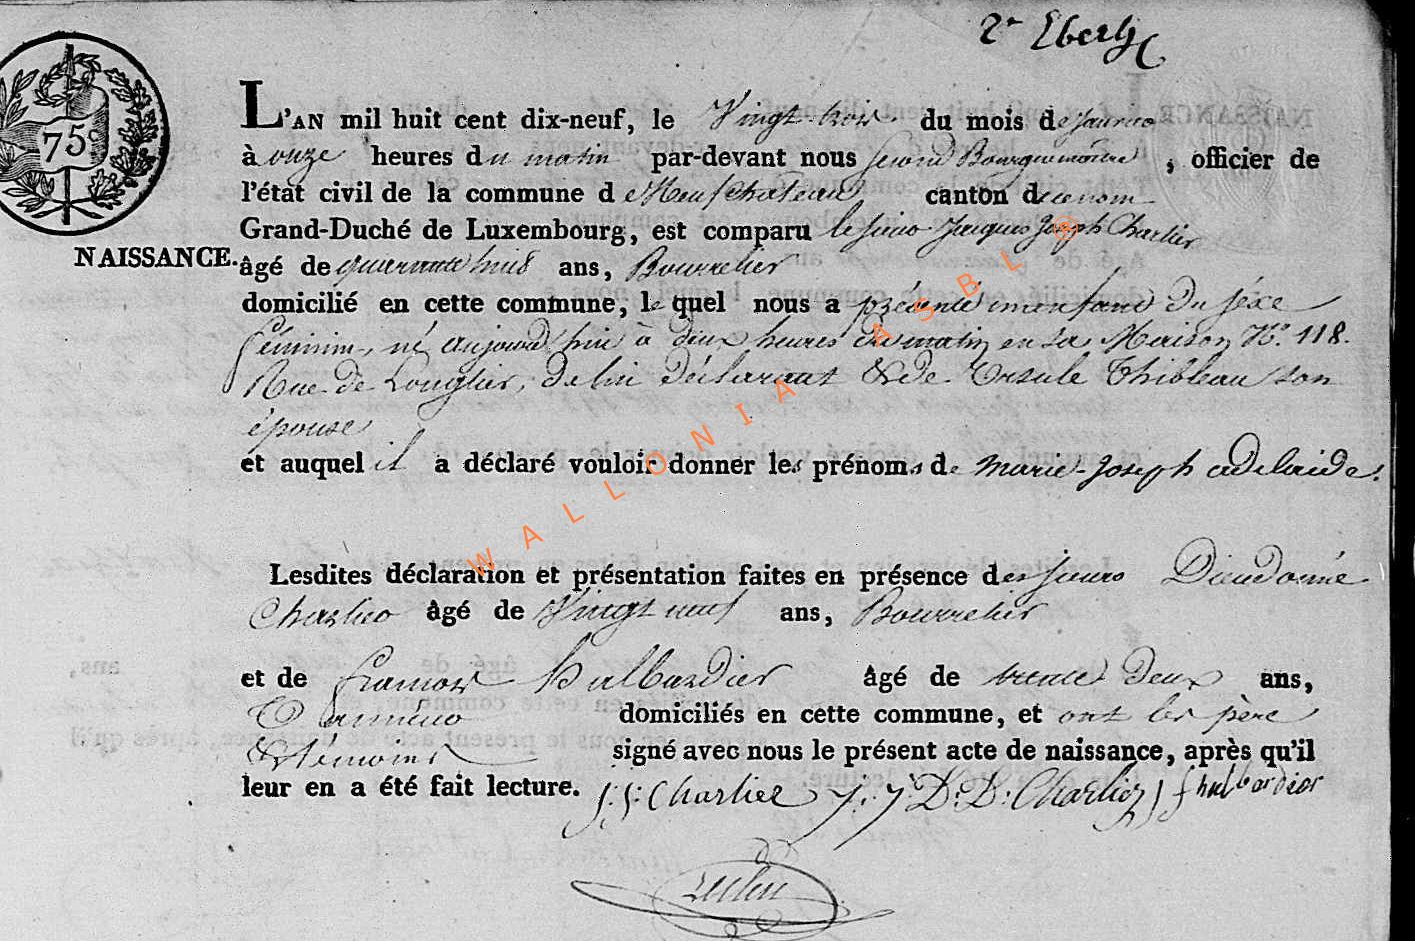 2e Eberh
75
L'AN mil huit cent dix-neuf, le Vingt trois du mois de janvier
à onze heures du matin par-devant nous second Bourguemaitre, officier de
l'état civil de la commune de Neufchâteau canton du ce nom
Grand-Duché de Luxembourg, est comparu le sieur Jacques Joseph Charlier
NAISSANCE. âgé de quarante huit ans, Bourrelier
domicilié en cette commune, lequel nous a présenté un enfant du sexe
féminin, né aujourd'hui à deux heures du matin en sa Maison No. 118.
Rue de Longlier, de lui déclarant & de Ursule Thibleau son
épouse
et auquel il a déclaré vouloir donner les prénoms de Marie-Joseph adelaide.
Lesdites déclaration et présentation faites en présence des sieurs Dieudonné
Charlier âgé de Vingt neuf ans, Bourrelier
et de François hulbardier âgé de trente deux ans,
domiciliés en cette commune, et ont les père
& témoins signé avec nous le présent acte de naissance, après qu'il
leur en a été fait lecture. J: J: Charlier D: D: Charlier f hulbardier
WALLONIA ASBL ®